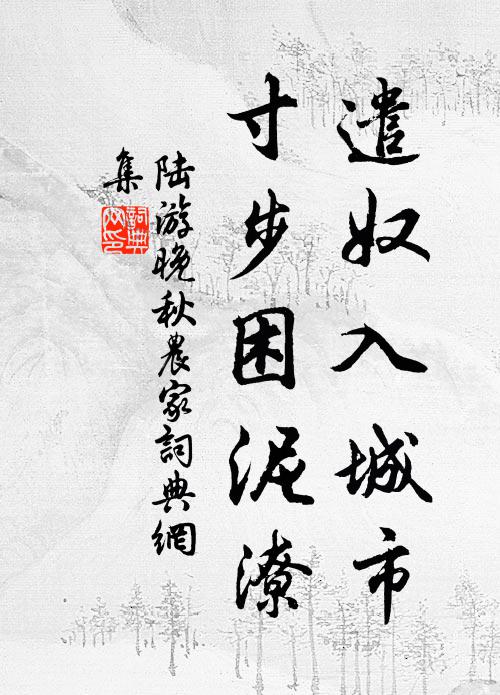 遣奴入城市
寸步困泥潦
陆游晚秋農家詞典網
集
詞典網印